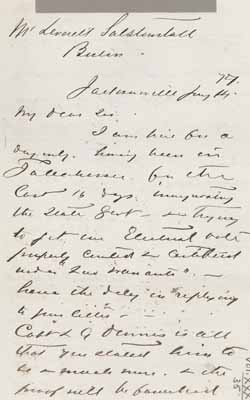 Mr Leverett Saltonstall
Boston.
Jacksonville Jany 14. 77
My dear Sir.
I am here for a
day only. having been in
Tallahassee for the
last 16 days, inaugurating
the State Govt - & trying
to get our Electoral vote
properly counted & certified
under "quo warranto". —
hence the delay in replying
to your letter —
L G Dennis is all
that you stated him to
be & much more. & the
proof will be furnished